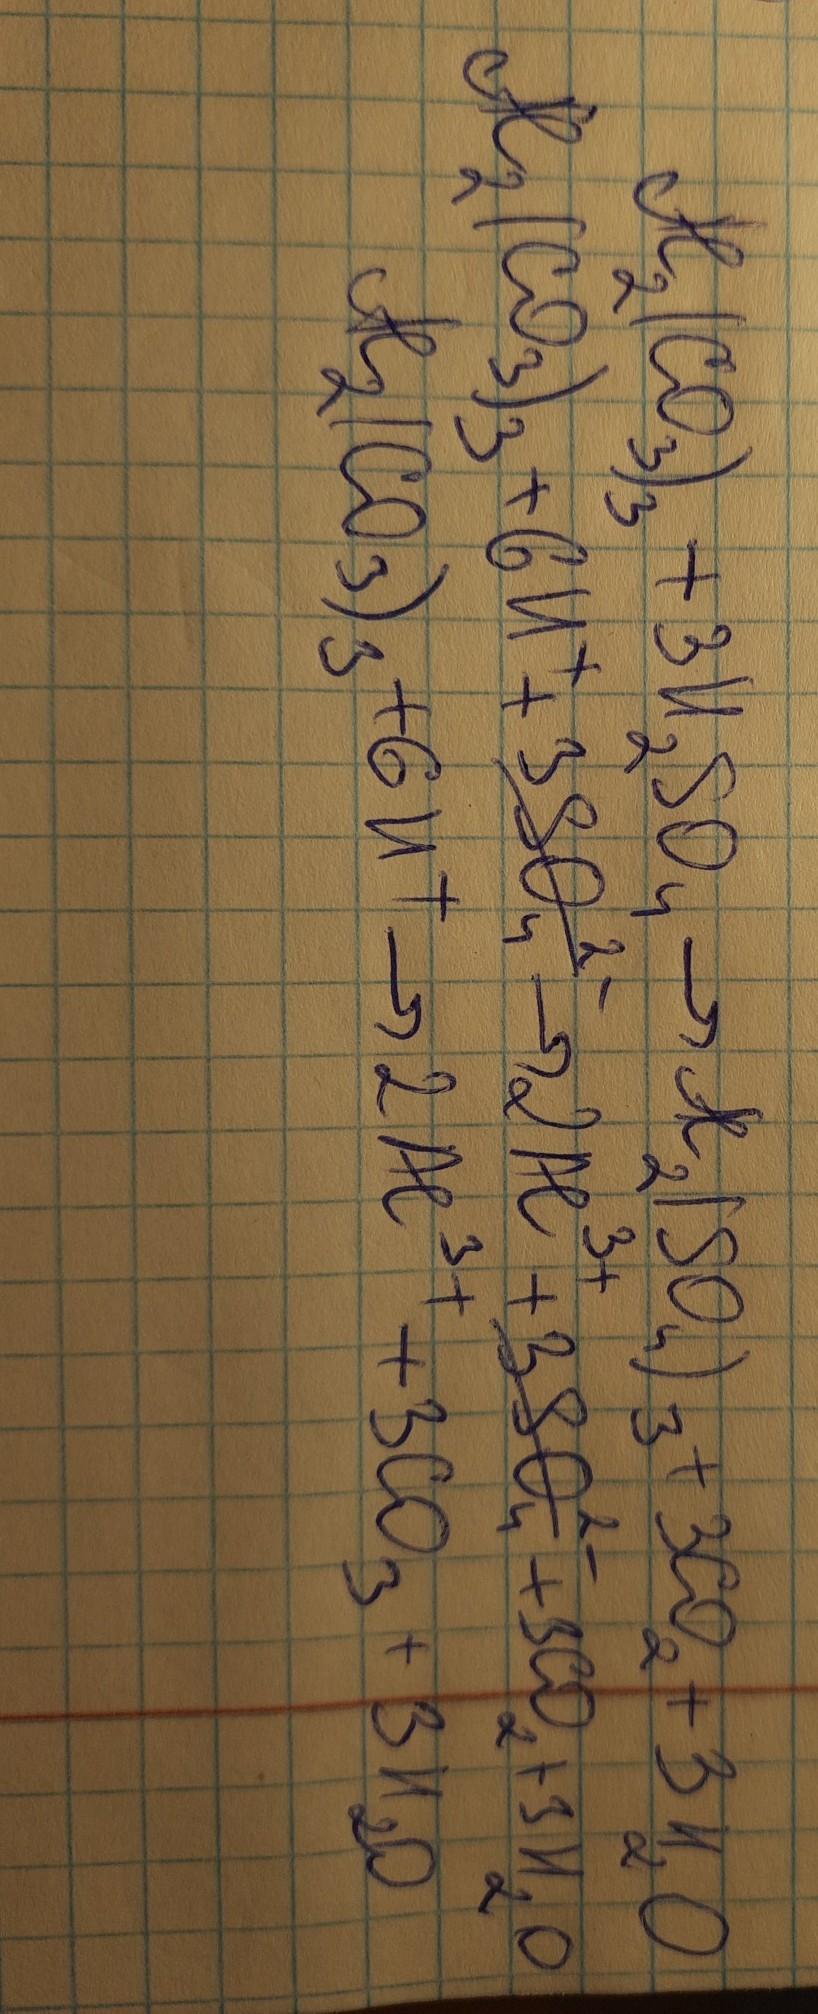 Al₂(CO₃)₃ + 3H₂SO₄ → Al₂(SO₄)₃ + 3CO₂ + 3H₂O
Al₂(CO₃)₃ + 6H⁺ + 3SO₄²⁻ → 2Al³⁺ + 3SO₄²⁻ + 3CO₂ + 3H₂O
Al₂(CO₃)₃ + 6H⁺ → 2Al³⁺ + 3CO₃ + 3H₂O